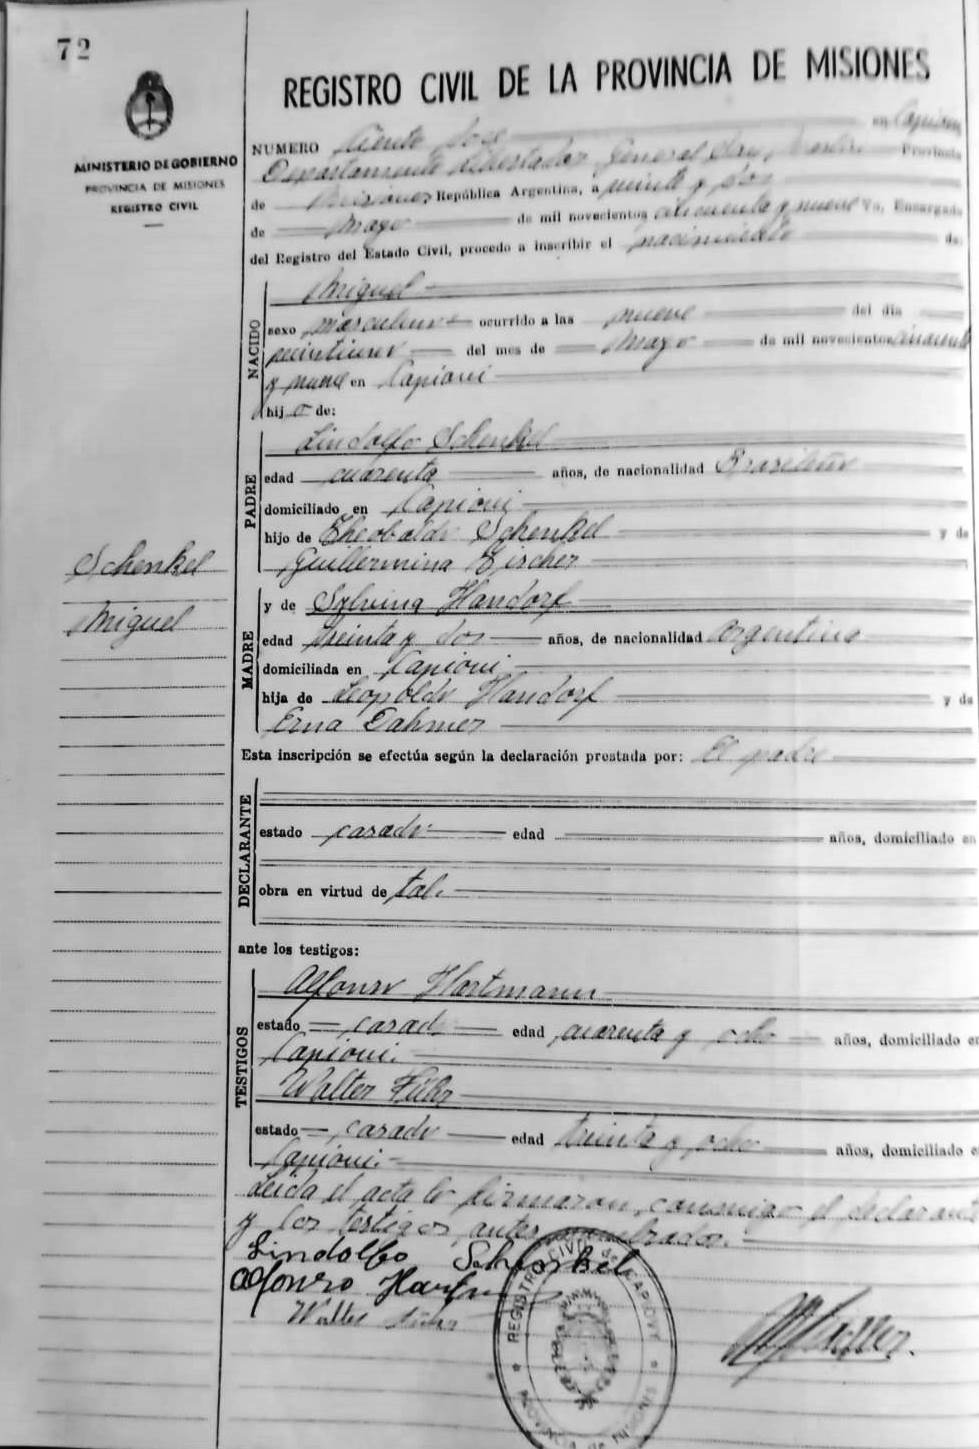 72
REGISTRO CIVIL DE LA PROVINCIA DE MISIONES
MINISTERIO DE GOBIERNO
PROVINCIA DE MISIONES
REGISTRO CIVIL
NUMERO Ciento dos en Capiovi
Departamento Libertador General San Martin Provincia
de Misiones República Argentina, a veinte y dos
de Mayo de mil novecientos cincuenta y nueve Yo, Encargado
del Registro del Estado Civil, procedo a inscribir el nacimiento de:
NACIDO
Miguel
sexo masculino ocurrido a las nueve del día
del mes de Mayo de mil novecientos cincuenta
y nueve en Capiovi
hijo de:
PADRE
Lindolfo Schenkel
edad cuarenta años, de nacionalidad Brasileño
domiciliado en Capiovi
hijo de Theobaldo Schenkel y de
Guillermina Fischer
Schenkel
Miguel
MADRE
y de Sylvina Handorf
edad treinta y dos años, de nacionalidad argentina
domiciliada en Capiovi
hija de Leopoldo Handorf y de
Erna Dahmer
Esta inscripción se efectúa según la declaración prestada por: El padre
DECLARANTE
estado casado edad años, domiciliado en
obra en virtud de tal.
ante los testigos:
TESTIGOS
Alfonso Hartmann
estado casado edad cuarenta y ocho años, domiciliado en
Capiovi.
Walter Führ
estado casado edad treinta y ocho años, domiciliado en
Capiovi.
Leida el acta la firmaron conmigo el declarante
y los testigos antes
Lindolfo Schenkel
Alfonso
Walter Führ
REGISTRO CIVIL de CAPIOVY
PROVINCIA de MISIONES